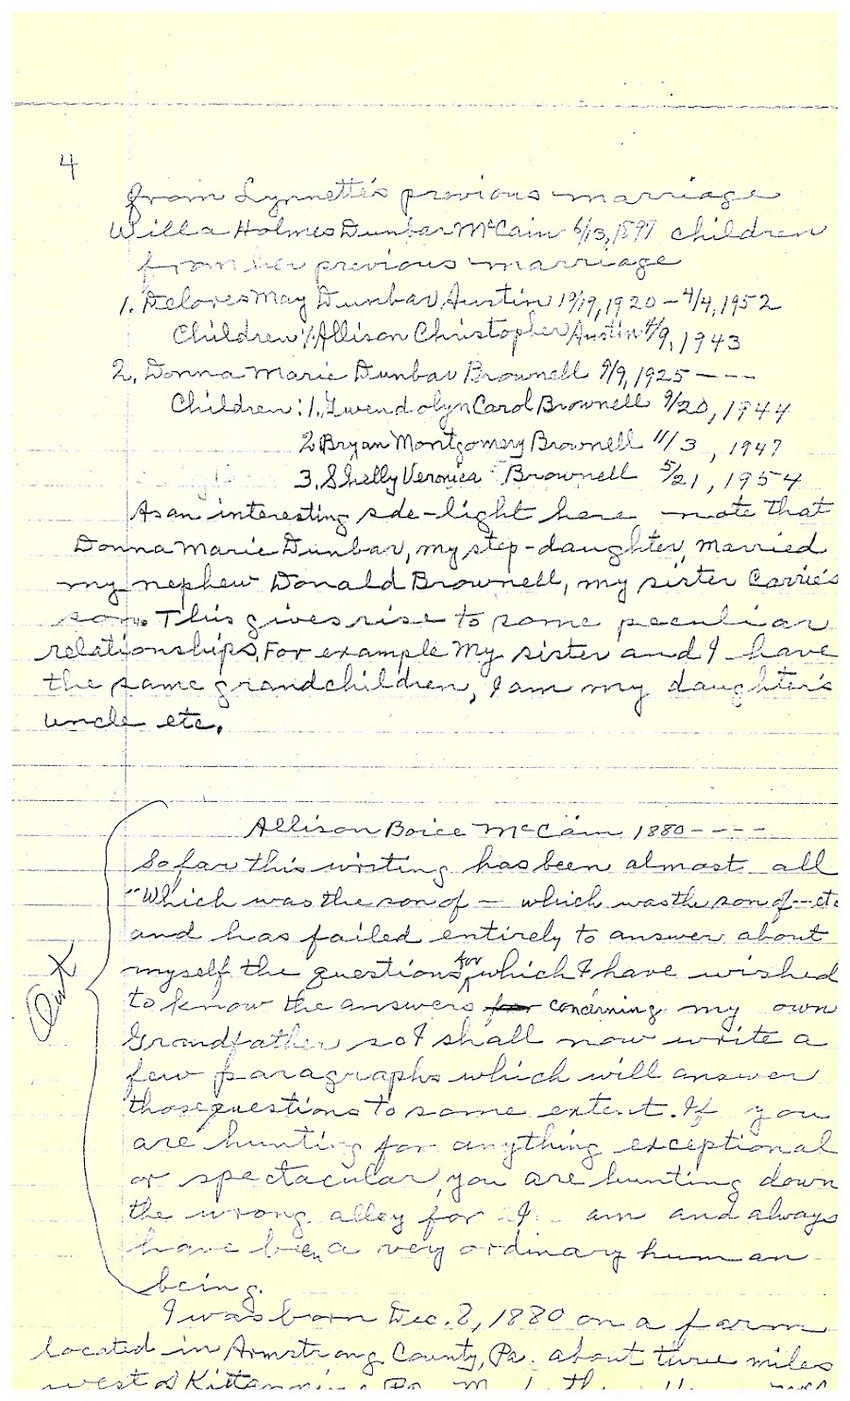 4
from Lynnette's previous marriage
Willa Holmes Dunbar McCain 6/13, 1897 children
from her previous marriage
1. Delores May Dunbar Austin 12/19, 1920 - 4/4, 1952
Children: 1. Allison Christopher Austin 4/9, 1943
2. Donna Marie Dunbar Brownell 9/9, 1925 - - -
Children: 1. Gwendolyn Carol Brownell 9/20, 1944
2 Bryan Montgomery Brownell 11/3, 1947
3. Shelly Veronica Brownell 5/21, 1954
As an interesting side-light here note that
Donna Marie Dunbar, my step-daughter, married
my nephew Donald Brownell, my sister Carrie's
son. This gives rise to some peculiar
relationships. For example My sister and I have
the same grandchildren, I am my daughter's
uncle etc.
Allison Boice McCain 1880 - - - -
So far this writing has been almost all
"Which was the son of — which was the son of -- etc
and has failed entirely to answer about
myself the questions for which I have wished
to know the answers for concerning my own
Grandfather so I shall now write a
few paragraphs which will answer
those questions to some extent. If you
are hunting for anything exceptional
or spectacular, you are hunting down
the wrong alley for I am and always
have been a very ordinary human
being.
Out
I was born Dec. 8, 1880 on a farm
located in Armstrong County, Pa. about three miles
west of Kittanning Pa.